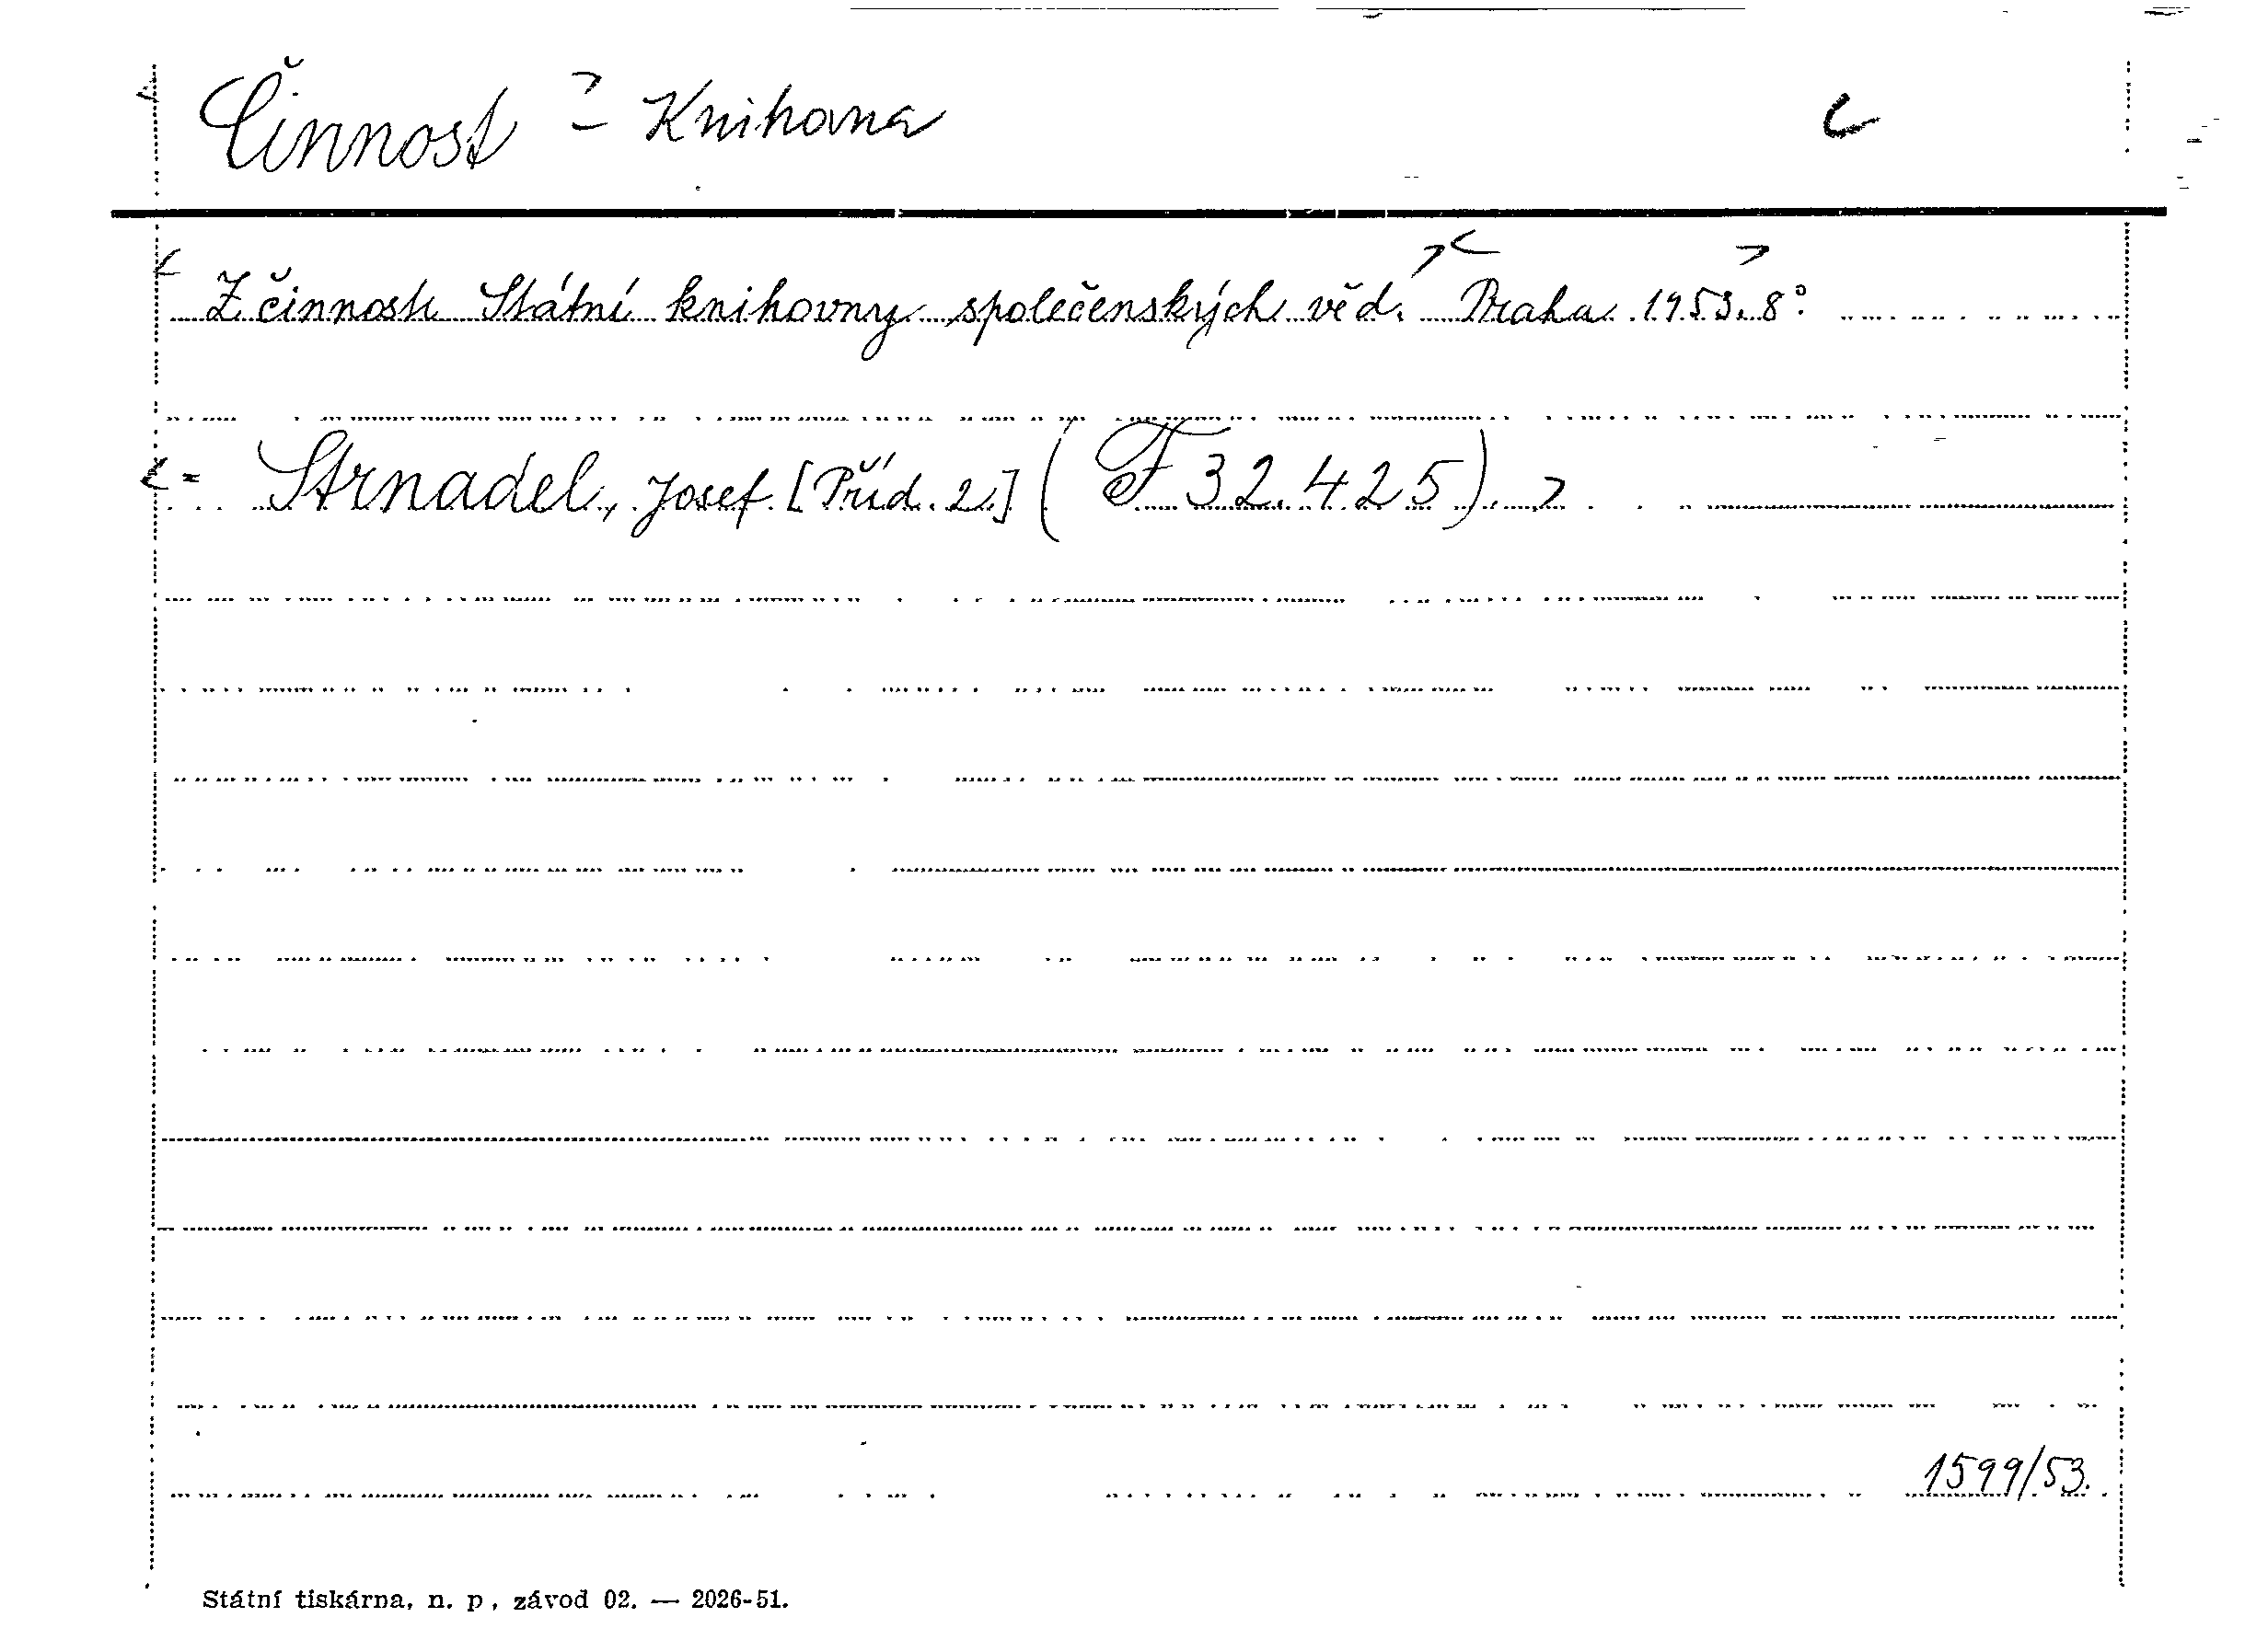 Činnost - Knihovna
Z činnosti Státní knihovny společenských věd. Praha 1953. 8°
= Strnadel, Josef [Příd. 2] (F 32.425)
1599/53.
Státní tiskárna, n. p., závod 02. — 2026-51.